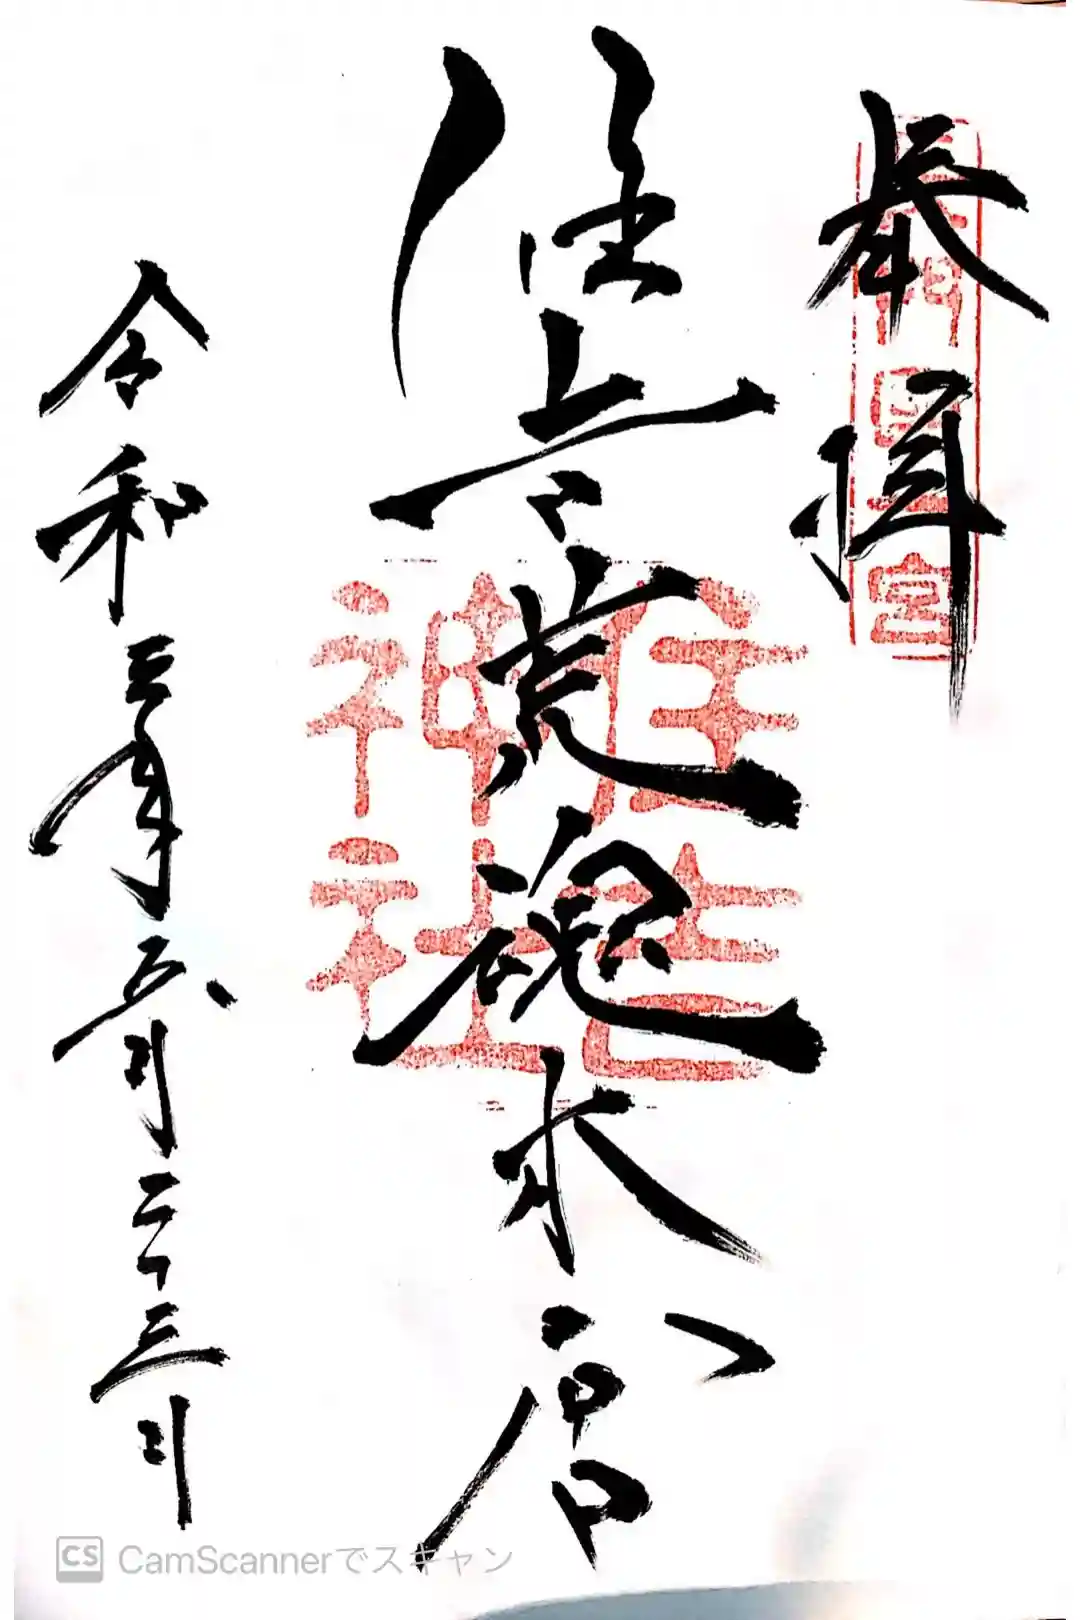 奉拝
長門國一宮
住吉荒魂本宮
住吉神社
令和三年五月二十三日
CS CamScannerでスキャン